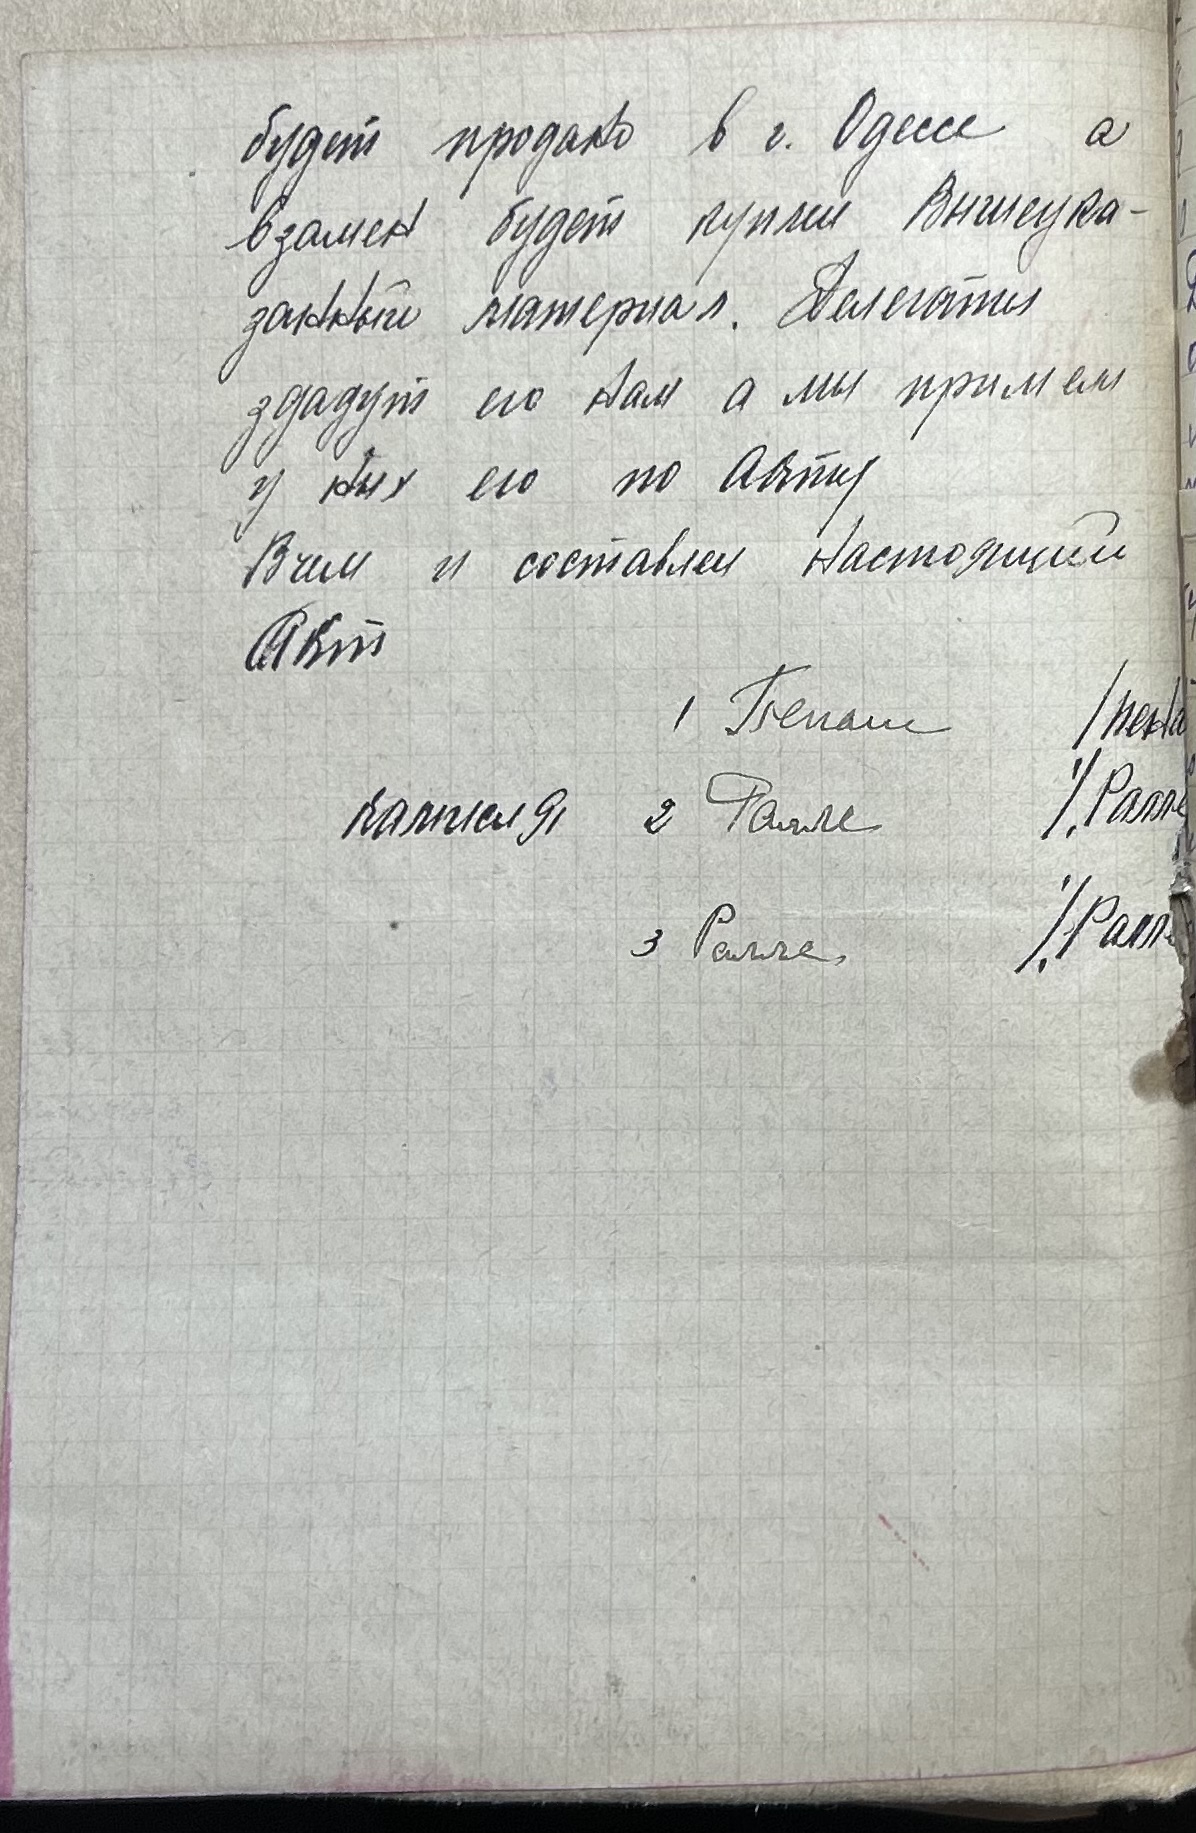 будет продано в г. Одессе а
взамен будет куплен Вышеука-
занный материал. Делегаты
здадут его нам а мы примем
у ных его по Акту
Вчем и составлен настоящий
Акт
1
2 Ралле /Ралле
3 Ралле /Ралле